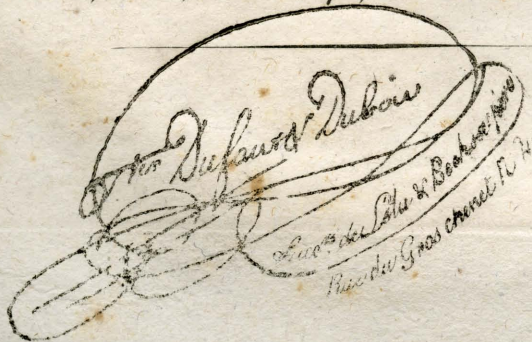 Vve Dufaut & Dubois
Succrs. de Lélu & Bechu père
Rue du Gros chenet N. 4